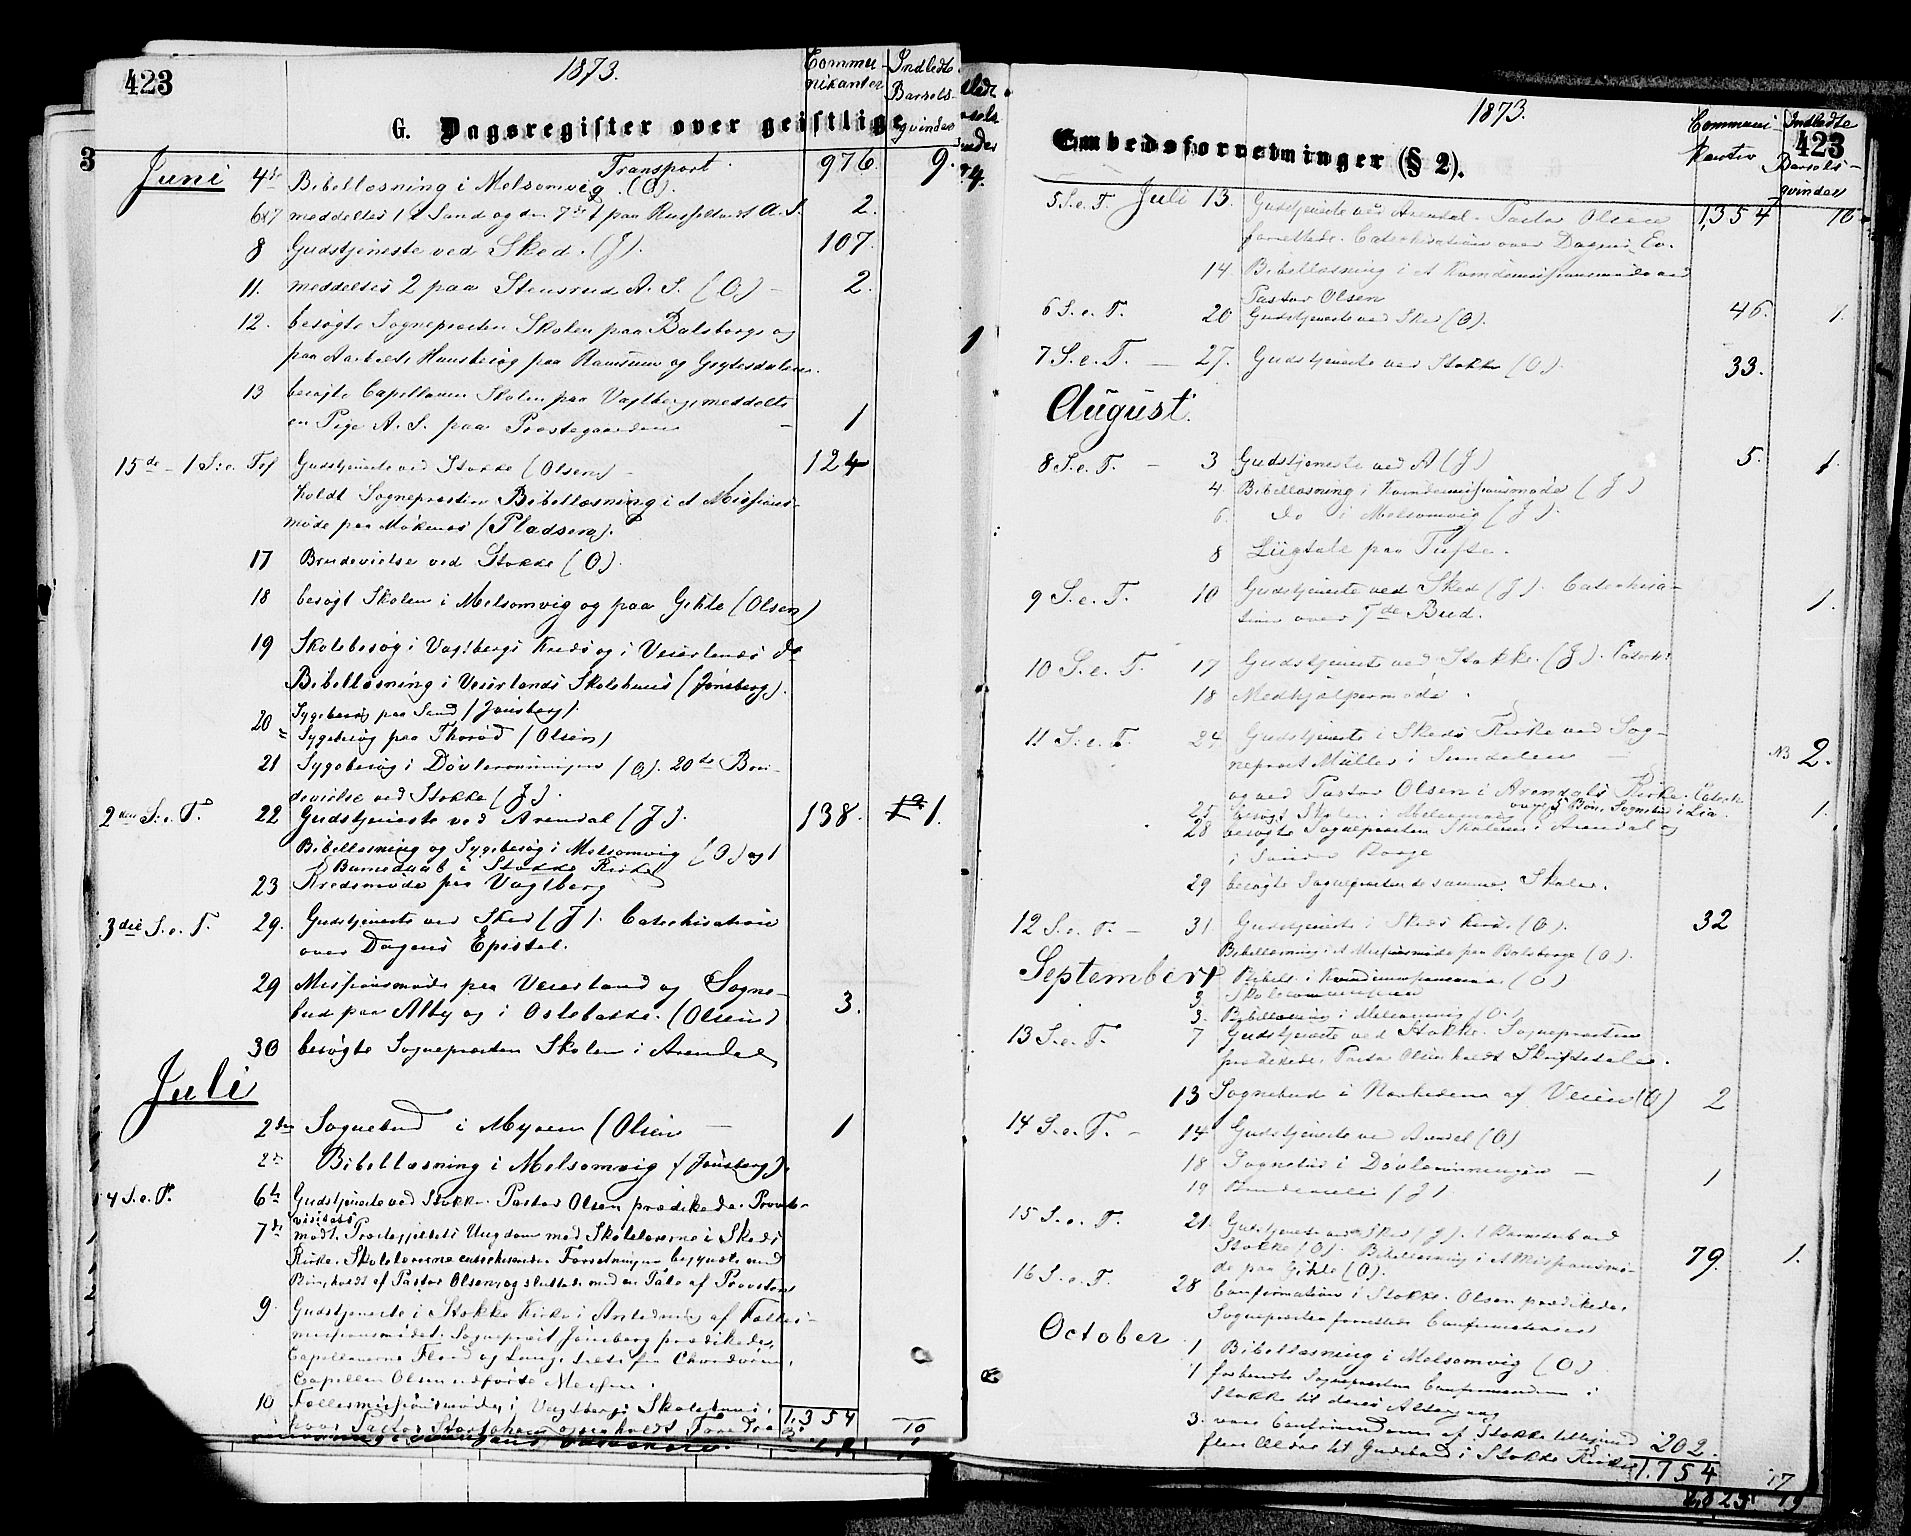 423
1873.
Commu-
nikanter
Indledte
Barsels-
qvinder
G. Dagsregister over geistlige
3
Transport.
976.
9.
Juni
4de Bibellæsning i Melsomvig. (O).
6&7 meddeltes 1 paa Sand og den 7de 1 paa A.S. 2.
8 Gudstjeneste ved Sked. (J). 107.
11. meddeltes 2 paa Stensrud A.S. (O) - 2.
12. besøgte Sognepresten Skolen paa Bolsborge og
paa Husbesøg paa Ramsum og
13 besøgte Capellanen Skolen paa Vagtberg, meddelte
en Pige A.S. paa Prestegaarden - 1
15de - 1 S.e. Tref Gudstjeneste ved Stokke (Olsen) - 124
holdt Sognepresten Bibellæsning i et Missions-
møde paa Møkenes (Pladsen).
17 Brudevielse ved Stokke (O).
18 besøgt Skolen i Melsomvig og paa Gjekle (Olsen)
19 Skolebesøg i Vagtbergs Kreds og i Veierlands do
Bibellæsning i Veierlands Skolehuus (Jonsberg).
20 Sygebesøg paa Sand (Jonsberg).
= Sygebesøg paa Thorød (Olsen)
21 Sygebesøg i Døvleronningen (O). 20de Bru-
devielse ved Stokke (J).
2den S.e.T. 22 Gudstjeneste ved Arendal (J). 138. 1.
Bibellæsning og Sygebesøg i Melsomvig (O) og 1
Barnedaab i Stokke Kirke
23 Kredsmøde paa Vagtberg
3die S.e.T. 29. Gudstjeneste ved Sked (J). Catechisation
over Dagens Epistel.
29 Missionsmøde paa Veierland og Sogne-
bud paa Alby og i Ostebakke. (Olsen) 3.
30 besøgte Sognepresten Skolen i Arendal
Juli
2den Sognebud i Myren (Olsen - 1
2de Bibellæsning i Melsomvig (Jonsberg).
4 S.e.T. 6te Gudstjeneste ved Stokke. Pastor Olsen prædikede. Provste-
visitats
7de mødt. Prestegjeldets Ungdom med Skolelærerne i Skeds
Kirke. Skolelærerne catechiserede. Forretningen begyndte med
Bøn, holdt af Pastor Olsen, og sluttede med en Tale af Provsten
9. Gudstjeneste i Stokke Kirke i Anledning af Fælles-
missionsmødet. Sognepræst Jonsberg prædikede,
Capellanerne Flood og Lange talte fra Chordøren,
Capellan Olsen udførte Messen.
10 Fællesmissionsmøde i Vagtbergs Skolehuus,
hvor Pastor holdt Foredrag
1.354
10
1873.
Communi-
kanter
Indledte
Barsels-
qvinder
423
Embedsforretninger (§ 2).
5 S.e.T. Juli 13. Gudstjeneste ved Arendal. Pastor Olsen 1,354 10
forrettede. Catechisation over Dagens Ev.
14 Bibellæsning i et Kvindemissionsmøde ved
Pastor Olsen
6 S.e.T. 20 Gudstjeneste ved Sked (O). 46. 1.
7 S.e.T. — 27. Gudstjeneste ved Stokke (O). 33.
August.
8 S.e.T. - 3 Gudstjeneste ved A (J) 5. 1.
4. Bibellæsning i Kvindemissionsmøde (J)
6 do i Melsomvig (J).
8 Liigtale paa Tufte.
9 S.e.T. 10 Gudstjeneste ved Sked (J). Catechisa-
tion over 7de Bud. 1.
10 S.e.T. 17 Gudstjeneste ved Stokke. (J).
18 Medhjælpermøde.
11 S.e.T. 24. Gudstjeneste i Skeds Kirke ved Sog-
nepræst Müller i Sundalen — NB 2.
og ved Pastor Olsen i Arendals Kirke. Catech.
over 5 Bøn. Sognetur i Lia.
25. besøgt Skolen i Melsomvig 1.
28 besøgte Sognepresten Skolerne i Arendal og
i Søndre Borge
29 besøgte Sognepresten de samme Skoler.
12 S.e.T. - 31. Gudstjeneste i Skeds Kirke (O). 32
Bibellæsning i et Missionsmøde paa Bolsborge (O).
September 1 Bibell. i Kvindemissionen (O)
3. Skolecommission
3. Bibellæsning i Melsomvig (O.)
13 S.e.T. 7 Gudstjeneste ved Stokke. Sognepresten
prædikede. Pastor Olsen holdt Skriftetale.
13 Sognebud i af Veien (O) 2
14 S.e.T. - 14 Gudstjeneste ved Arendal (O)
18 Sognetur i Døvleronningen — 1
19 Brudevielse (J).
15 S.e.T. 21. Gudstjeneste ved Sked (J). 1 Barnedaab ved
Stokke (O). Bibellæsning i et Missionsmø-
de paa Gjekle (O). 79. 1.
16 S.e.T. 28 Confirmation i Stokke. Olsen prædikede.
Sognepresten forrettede Confirmationen
October 1 Bibellæsning i Melsomvig (O).
1 forberedte Sognepresten Confirmanderne i
Stokke til deres Altergang
3. vare Confirmanderne af Stokke tilligemed
flere Ældre til Gudsbord i Stokke Kirke 202.
1.754
17